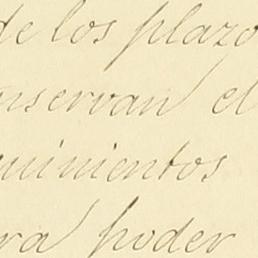 de los plazo
nservan el
uinientos
ra poder